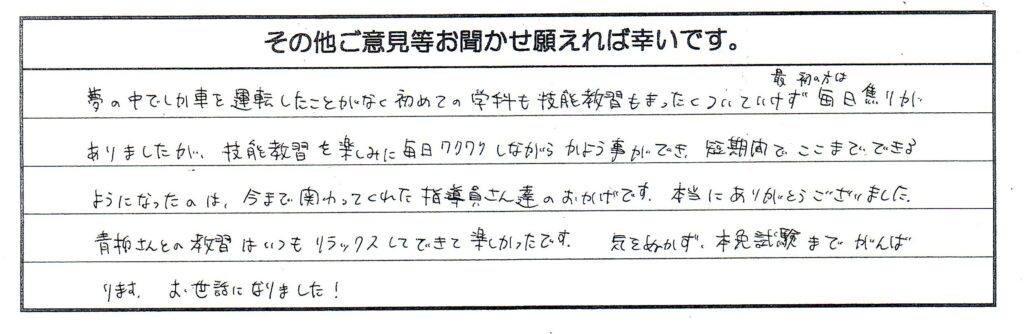 その他ご意見等お聞かせ願えれば幸いです。
最初の方は
夢の中でしか車を運転したことがなく初めての学科も技能教習もまったくついていけず毎日焦りが
ありましたが、技能教習を楽しみに毎日ワクワクしながらかよう事ができ、短期間でここまでできる
ようになったのは、今まで関わってくれた指導員さん達のおかげです。本当にありがとうございました。
青柳さんとの教習はいつもリラックスしてできて楽しかったです。 気をぬかず、本免試験までがんば
ります。お世話になりました!